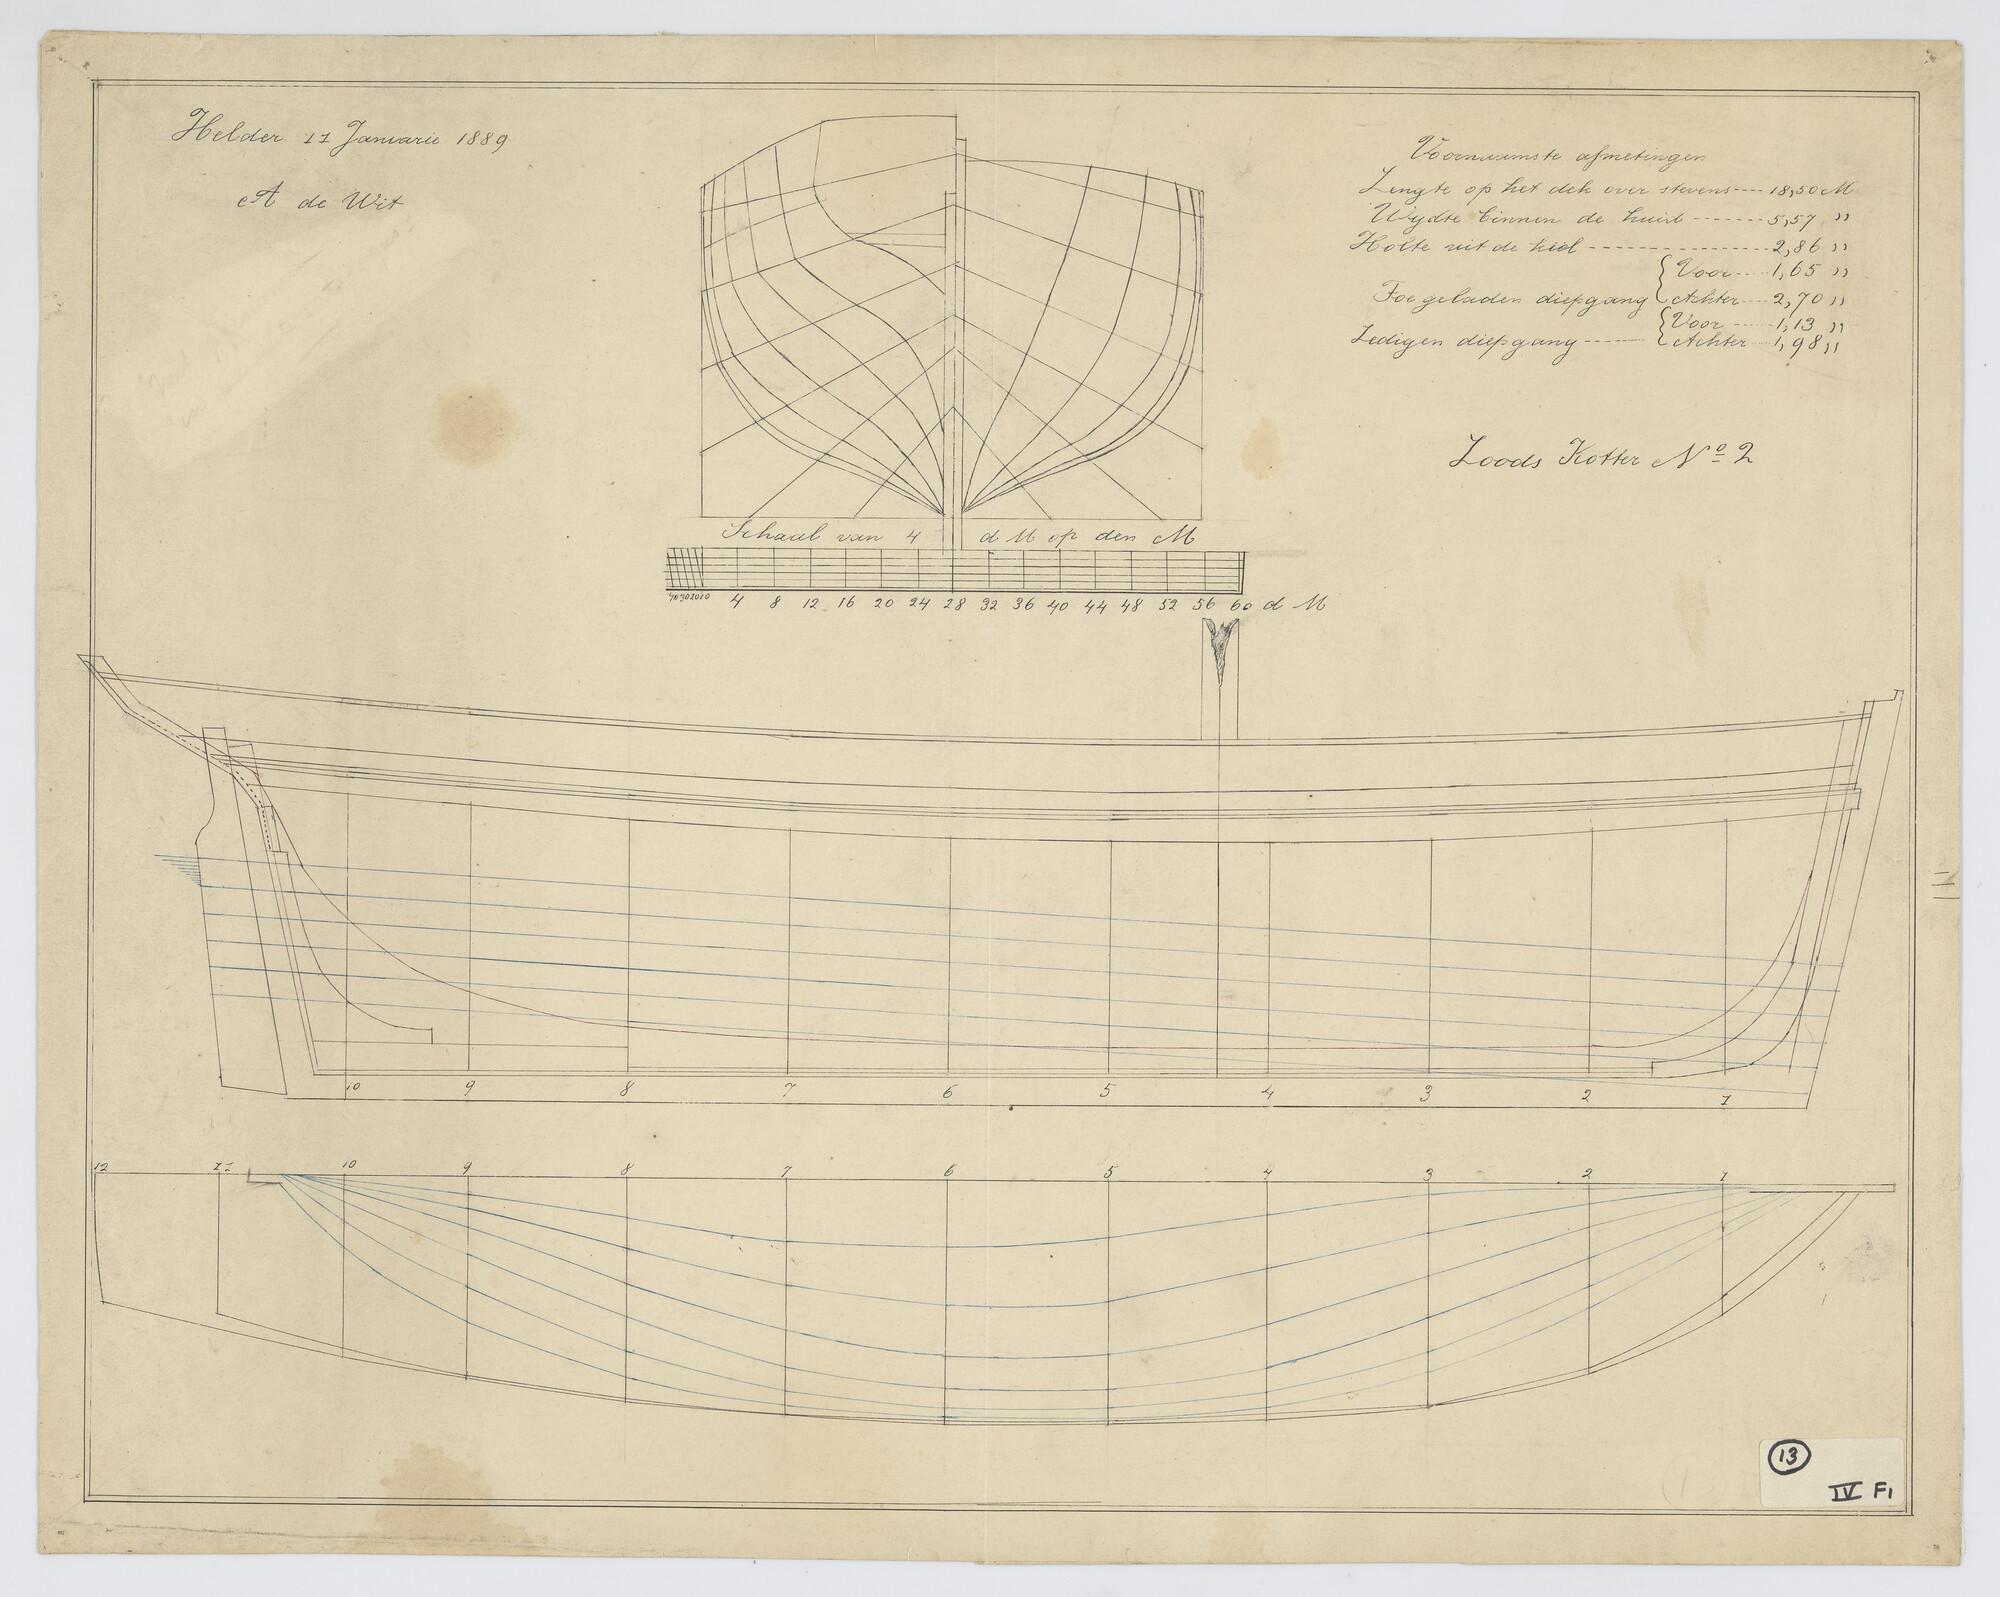 Helder 11 Januarie 1889
A de Wit
Voornaamste afmetingen
Lengte op het dek over stevens---- 18,50 M
Wydte binnen de huid ------- 5,57 "
Holte uit de kiel -------------- 2,86 "
Voor---- 1,65 "
Toegeladen diepgang Achter---- 2,70 "
Voor ----- 1,13 "
Ledigen diepgang ------ Achter--- 1,98 "
Loods Kotter No 2
Schaal van 4 d M op den M
40 30 20 10 4 8 12 16 20 24 28 32 36 40 44 48 52 56 60 d M
10 9 8 7 6 5 4 3 2 1
12 11 10 9 8 7 6 5 4 3 2 1
13
IV F1